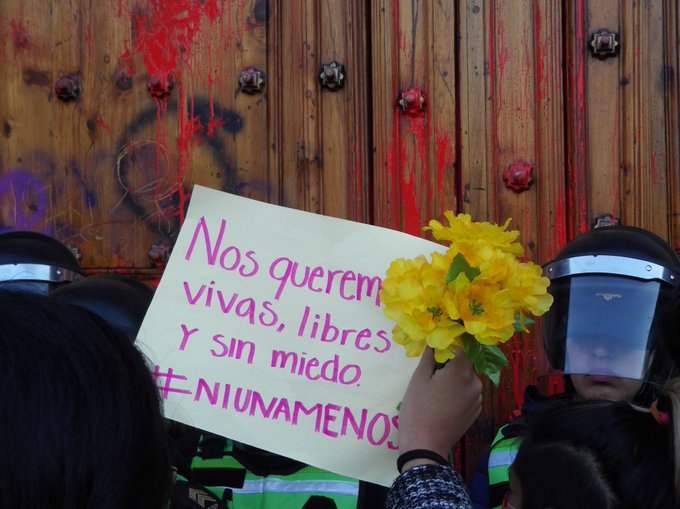 Nos querem
vivas, libres
Y sin miedo.
#NIUNAMENOS